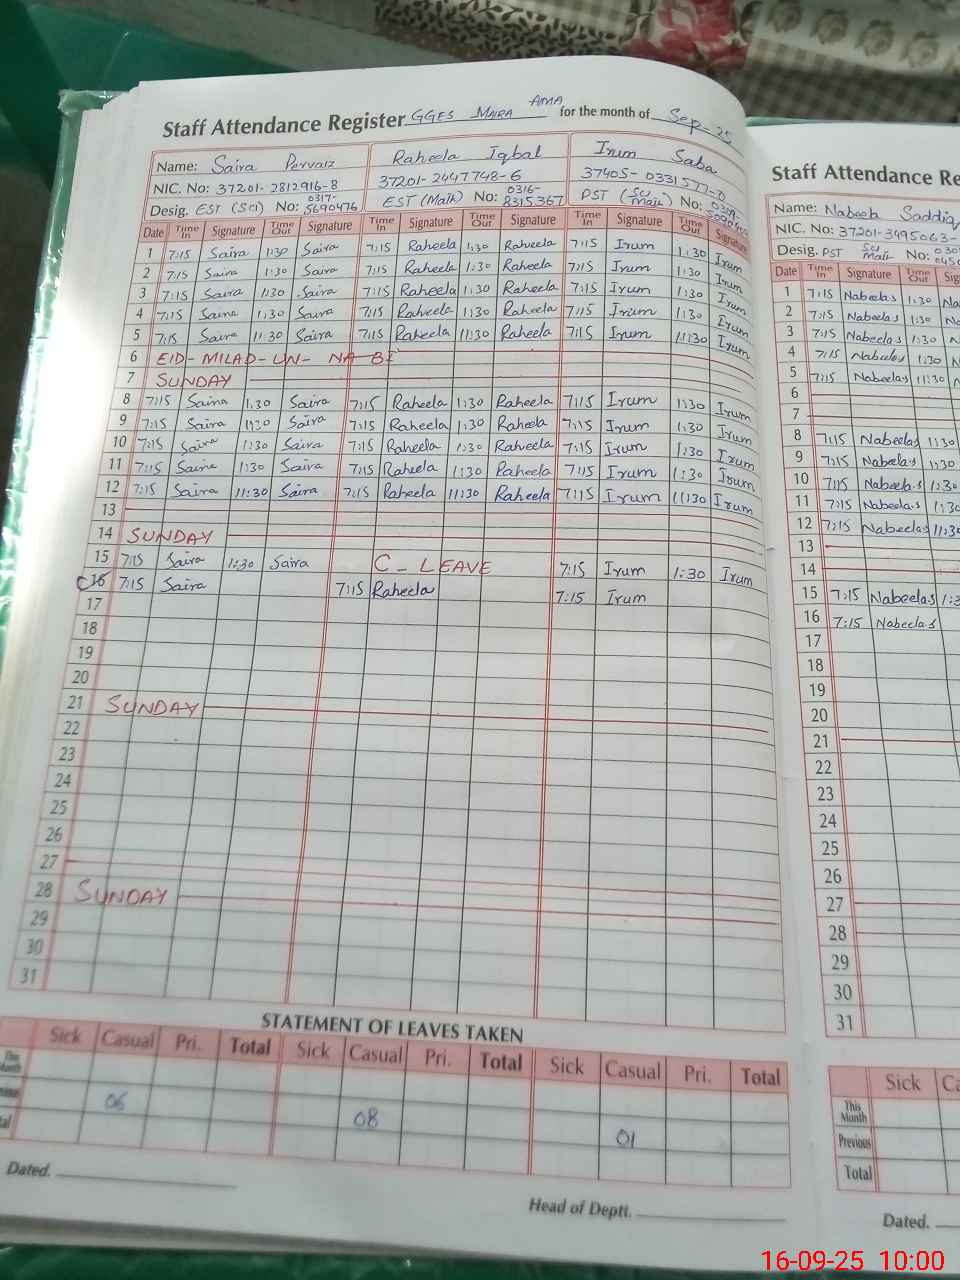 Staff Attendance Register GGES MAIRA AMA for the month of Sep-25
Name: Saira Pervaiz Raheela Iqbal Irum Saba
NIC. No: 37201-2812916-8 37201-2447748-6 37405-0331577-0
Desig. EST (Sci) No: 0317-5690476 EST (Math) No: 0316-8315367 PST (Sci Math) No:
Date Time In Signature Time Out Signature Time In Signature Time Out Signature Time In Signature Time Out Signature
1 7:15 Saira 1:30 Saira 7:15 Raheela 1:30 Raheela 7:15 Irum 1:30 Irum
2 7:15 Saira 1:30 Saira 7:15 Raheela 1:30 Raheela 7:15 Irum 1:30 Irum
3 7:15 Saira 1:30 Saira 7:15 Raheela 1:30 Raheela 7:15 Irum 1:30 Irum
4 7:15 Saira 1:30 Saira 7:15 Raheela 1:30 Raheela 7:15 Irum 1:30 Irum
5 7:15 Saira 11:30 Saira 7:15 Raheela 11:30 Raheela 7:15 Irum 11:30 Irum
6 EID-MILAD-UN-NABI
7 SUNDAY
8 7:15 Saira 1:30 Saira 7:15 Raheela 1:30 Raheela 7:15 Irum 1:30 Irum
9 7:15 Saira 1:30 Saira 7:15 Raheela 1:30 Raheela 7:15 Irum 1:30 Irum
10 7:15 Saira 1:30 Saira 7:15 Raheela 1:30 Raheela 7:15 Irum 1:30 Irum
11 7:15 Saira 1:30 Saira 7:15 Raheela 1:30 Raheela 7:15 Irum 1:30 Irum
12 7:15 Saira 11:30 Saira 7:15 Raheela 11:30 Raheela 7:15 Irum 11:30 Irum
13
14 SUNDAY
15 7:15 Saira 1:30 Saira C-LEAVE 7:15 Irum 1:30 Irum
16 7:15 Saira 7:15 Raheela 7:15 Irum
17
18
19
20
21 SUNDAY
22
23
24
25
26
27
28 SUNDAY
29
30
31
STATEMENT OF LEAVES TAKEN
Sick Casual Pri. Total Sick Casual Pri. Total Sick Casual Pri. Total
This Month
06 08 01
Dated.
Head of Deptt.
Staff Attendance Re
Name: Nabeela Saddiq
NIC. No: 37201-3495063-
Desig. PST Sci Math No:
Date Time In Signature Time Out Sig
1 7:15 Nabeela.s 1:30 Na
2 7:15 Nabeela.s 1:30 N
3 7:15 Nabeela.s 1:30 N
4 7:15 Nabeela.s 1:30
5 7:15 Nabeela.s 11:30
6
7
8 7:15 Nabeela.s 1:30
9 7:15 Nabeela.s 1:30
10 7:15 Nabeela.s 1:30
11 7:15 Nabeela.s 1:30
12 7:15 Nabeela.s 11:30
13
14
15 7:15 Nabeela.s 1:3
16 7:15 Nabeela.s
17
18
19
20
21
22
23
24
25
26
27
28
29
30
31
Sick Ca
This Month
Previous
Total
Dated.
16-09-25 10:00